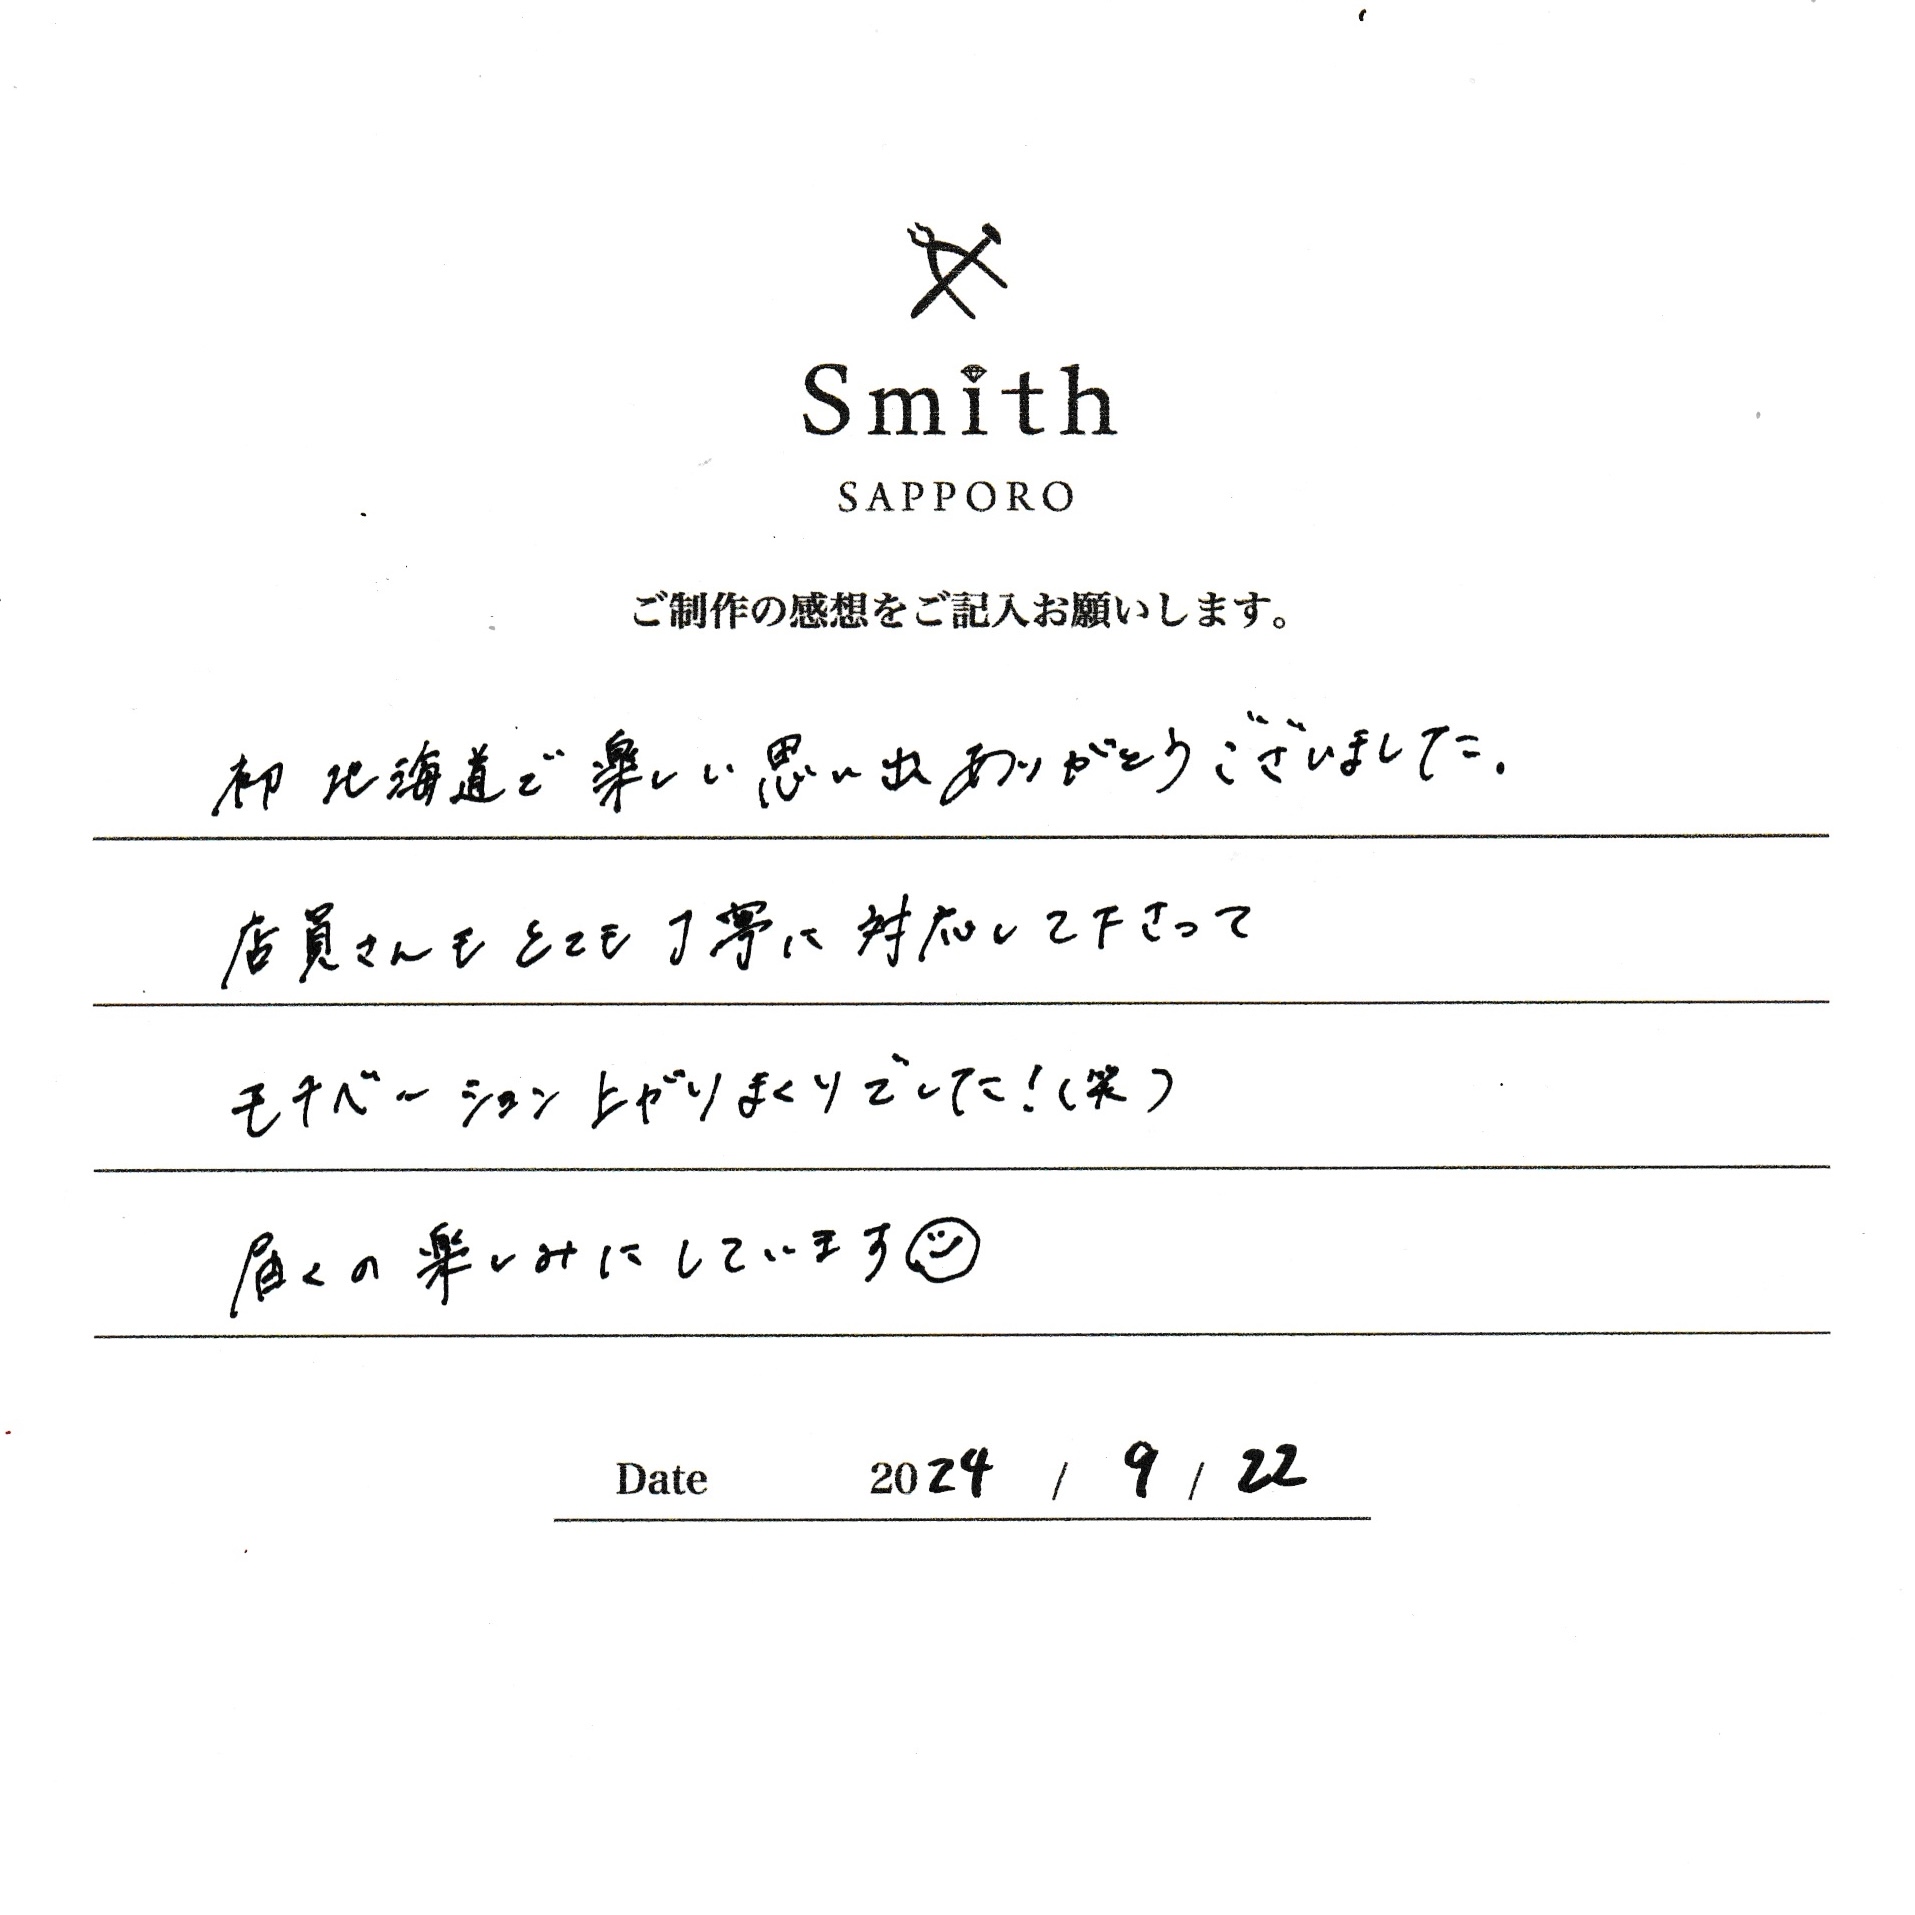 Smith
SAPPORO
ご制作の感想をご記入お願いします。
初北海道で楽しい思い出ありがとうございました.
店員さんもとても丁寧に対応して下さって
モチベーション上がりまくりでした!(笑)
届くの楽しみにしています
Date 2024 / 9 / 22